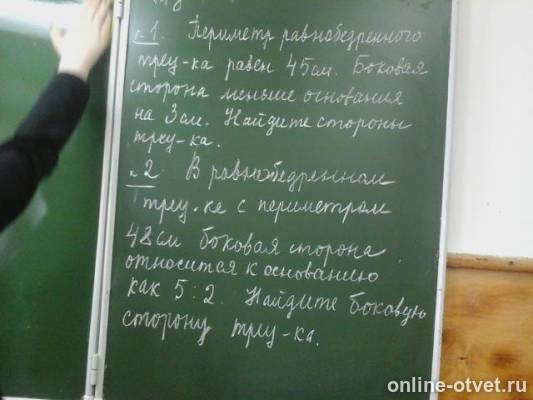 №1. Периметр равнобедренного
треу-ка равен 45см. Боковая
сторона меньше основания
на 3см. Найдите стороны
треу-ка.
№2. В равнобедренном
треу-ке с периметром
48см боковая сторона
относится к основанию
как 5:2. Найдите боковую
сторону треу-ка.
online-otvet.ru